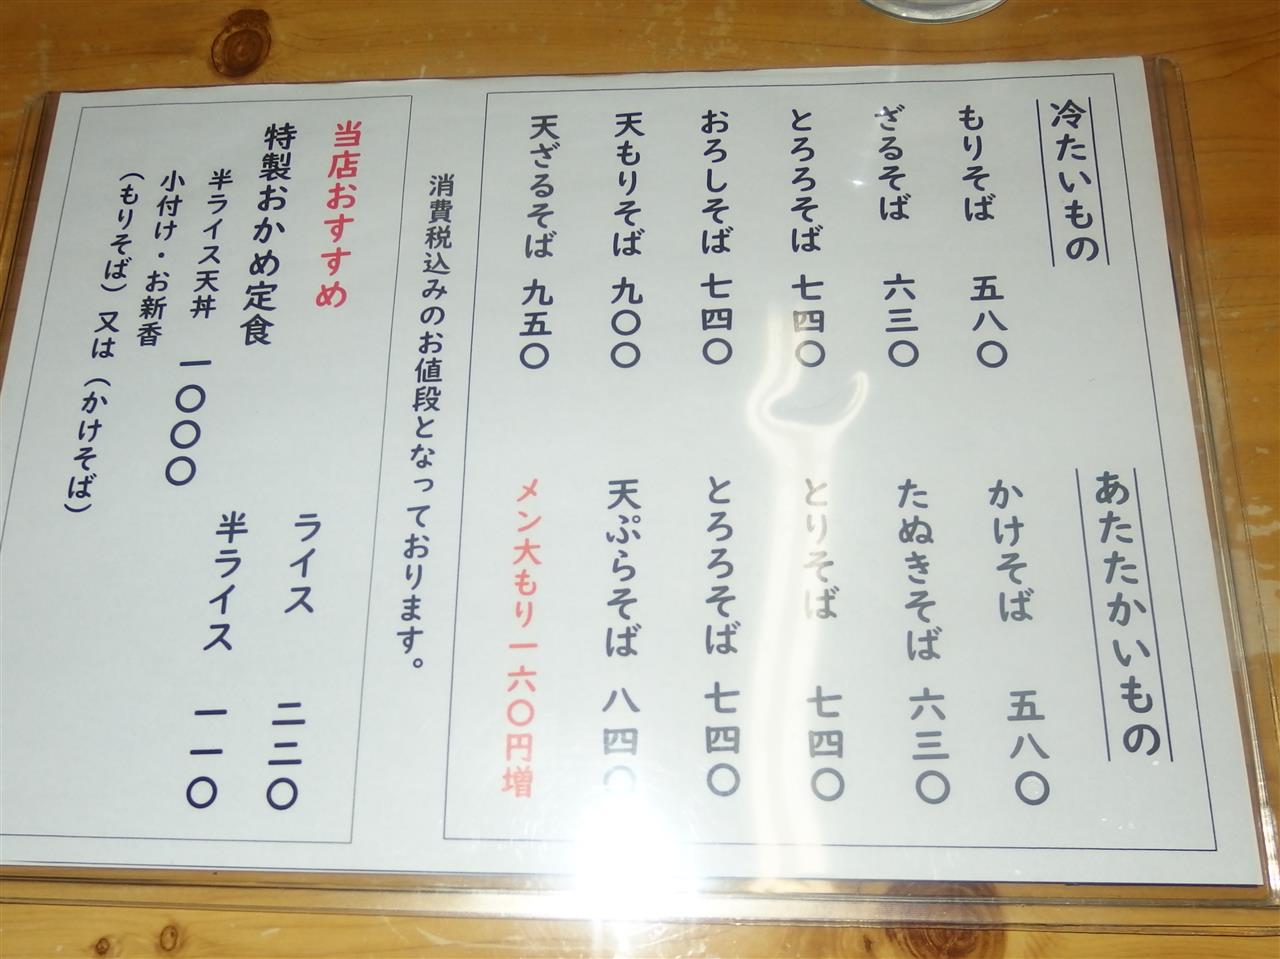 冷たいもの
もりそば 五八〇
ざるそば 六三〇
とろろそば 七四〇
おろしそば 七四〇
天もりそば 九〇〇
天ざるそば 九五〇
あたたかいもの
かけそば 五八〇
たぬきそば 六三〇
とりそば 七四〇
とろろそば 七四〇
天ぷらそば 八四〇
メン大もり一六〇円増
消費税込みのお値段となっております。
当店おすすめ
特製おかめ定食
半ライス天丼 一〇〇〇
小付け・お新香
(もりそば)又は(かけそば)
ライス 二二〇
半ライス 一一〇